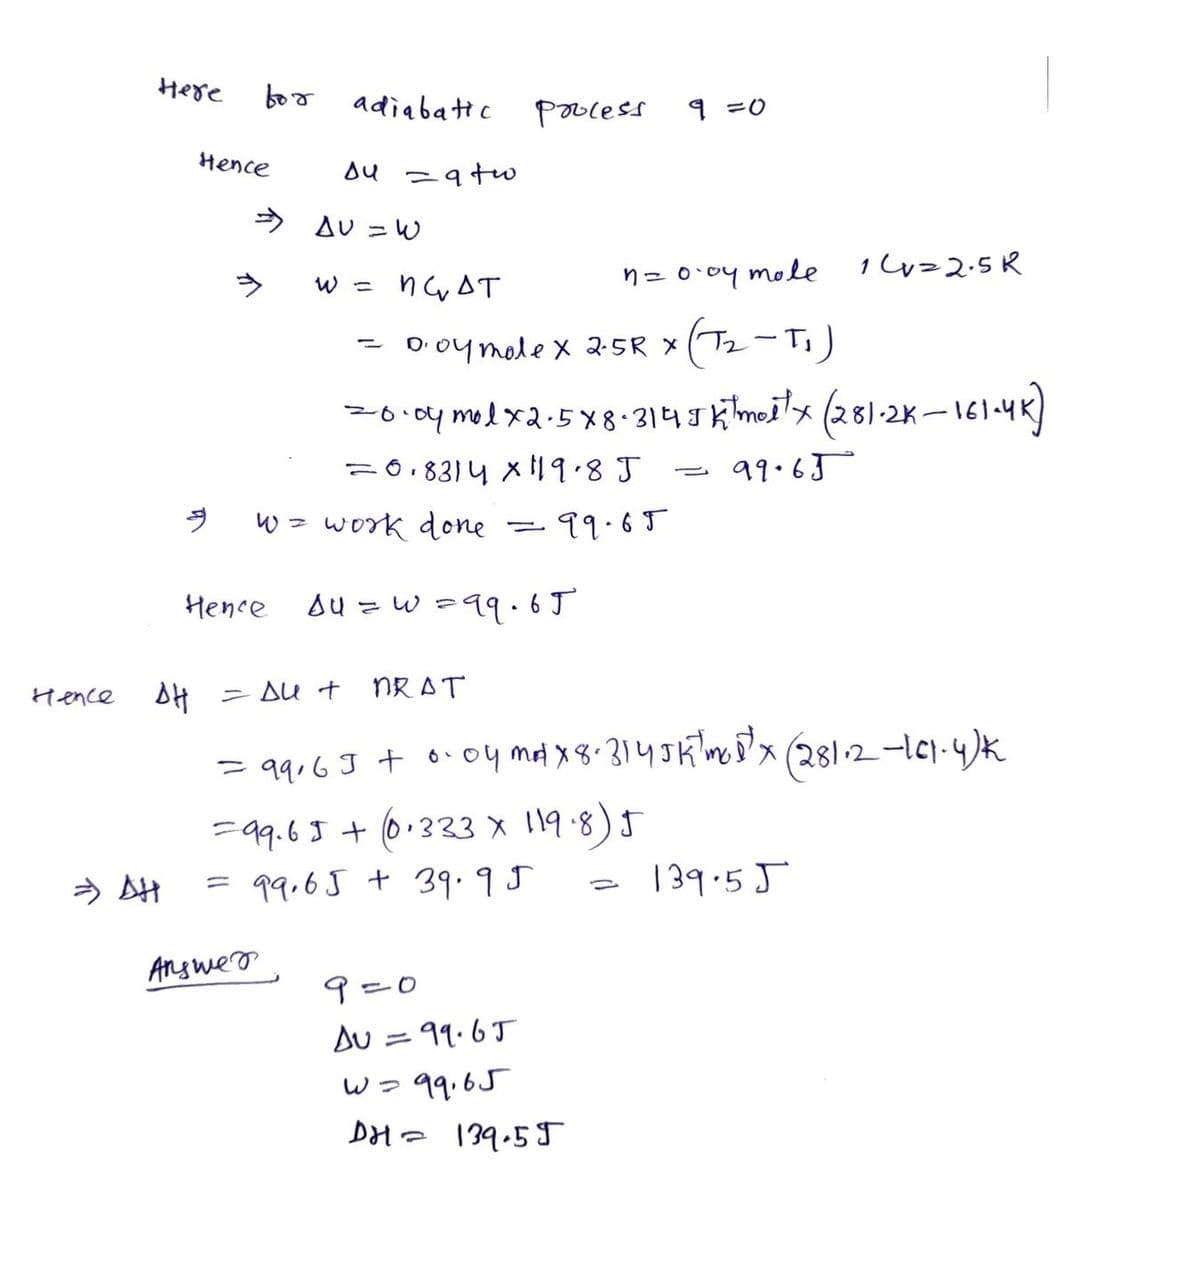 Here for adiabatic process q =0
Hence ΔU =q+w
⇒ ΔU =W
⇒ W = nCvΔT n= 0.04 mole , Cv=2.5R
= 0.04mole x 2.5R x (T2 – T1)
=0.04 mol x 2.5 x 8.314 J K⁻¹mol⁻¹ x (281.2K – 161.4K)
=0.8314 x 119.8 J = 99.6J
⇒ W = work done = 99.6J
Hence ΔU = W =99.6J
Hence ΔH = ΔU + nRΔT
= 99.6J + 0.04 mol x 8.314JK⁻¹mol⁻¹ x (281.2 –161.4)K
=99.6J + (0.333 x 119.8) J
⇒ ΔH = 99.6J + 39.9J = 139.5J
Answer,
q =0
ΔU = 99.6J
W = 99.6J
ΔH = 139.5J